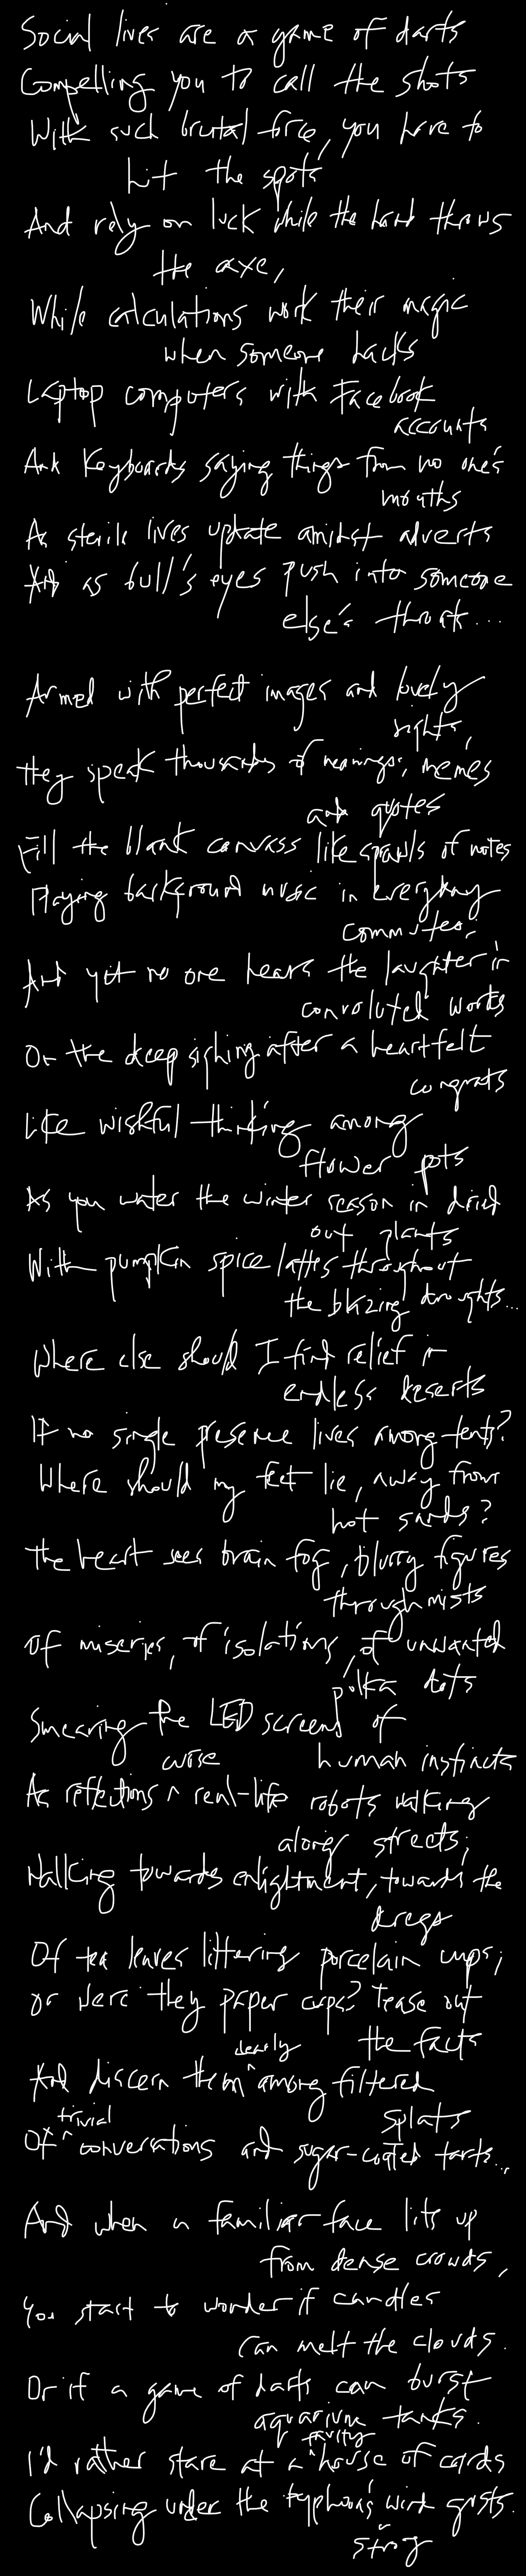 Social lives are a game of darts
Compelling you to call the shots
With such brutal force, you have to
hit the spots
And rely on luck while the hand throws
the axe,
While calculations work their magic
when someone hacks
Laptop computers with Facebook
accounts
And Keyboards saying things from no one's
mouths
As sterile lives update amidst adverts
And as bull's eyes push into someone
else's throat...
Armed with perfect images and lovely
sights,
They speak thousands of meanings; memes
and quotes
Fill the blank canvass like sprawls of notes
Playing background music in everyday
commutes;
And yet no one hears the laughter in
convoluted words
Or the deep sighing after a heartfelt
congrats
Like wishful thinking among
flower pots
As you water the winter season in dried
out plants
With pumpkin spice lattes throughout
the blazing droughts...
Where else should I find relief in
endless deserts
If no single presence lives among tents?
Where should my feet lie, away from
hot sands?
The heart sees brain fog, blurry figures
through mists
Of miseries, of isolations, of unwanted
polka dots
Smearing the LED screens of
human instincts
As reflections curse real-life robots walking
along streets;
Walking towards enlightment, towards the
dregs
Of tea leaves littering porcelain cups;
Or were they paper cups? Tease out
the facts
And discern them dearly among filtered
splats
Of trivial conversations and sugar-coated tarts...
And when a familiar face lits up
from dense crowds,
You start to wonder if candles
can melt the clouds.
Or if a game of darts can burst
aquarium tanks.
I'd rather stare at a house of cards
Collapsing under the typhoon's wind gusts.
strong